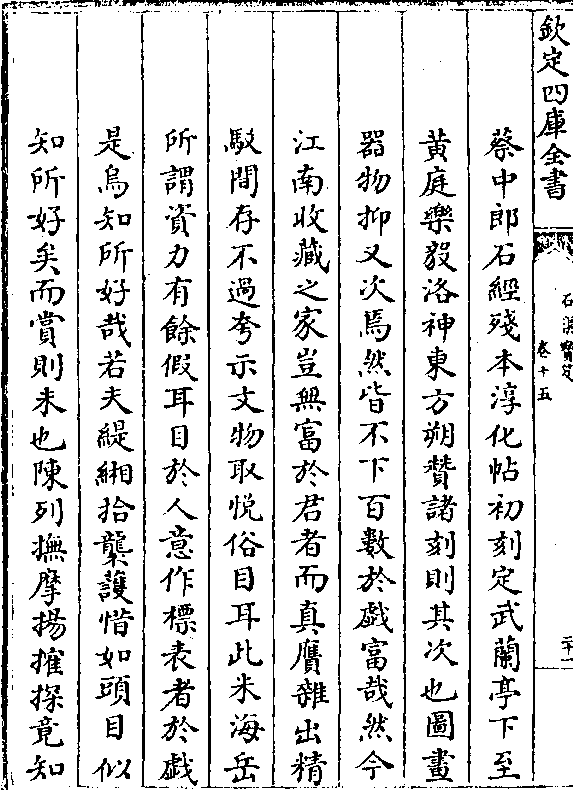 欽定四庫全書
石渠寳笈
卷十五
二十一
蔡中郎石經殘本淳化帖初刻定武蘭亭下至
黄庭樂毅洛神東方朔賛諸刻則其次也圖畫
器物抑又次焉然皆不下百數於戯富哉然今
江南收藏之家豈無富於君者而真贋雜出精
駁間存不過夸示文物取悦俗目耳此米海岳
所謂資力有餘假耳目於人意作標表者於戯
是烏知所好哉若夫緹緗拾襲護惜如頭目似
知所好矣而賞則未也陳列撫摩揚搉探竟知